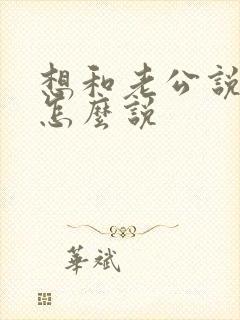 想和老公说
怎麼説
華斌